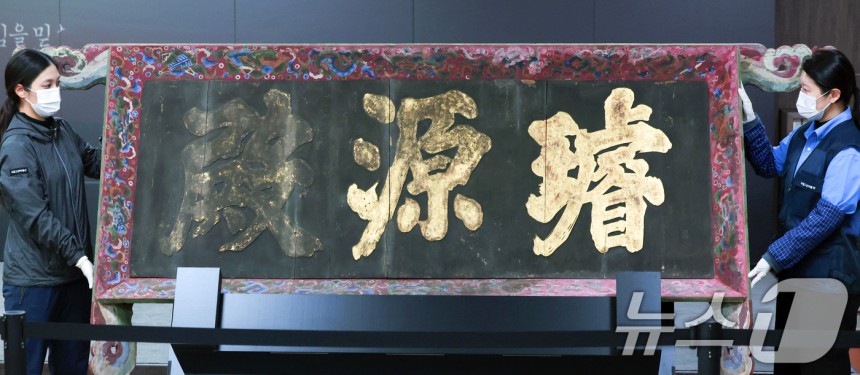 힘을 밀
璿源殿
뉴스1